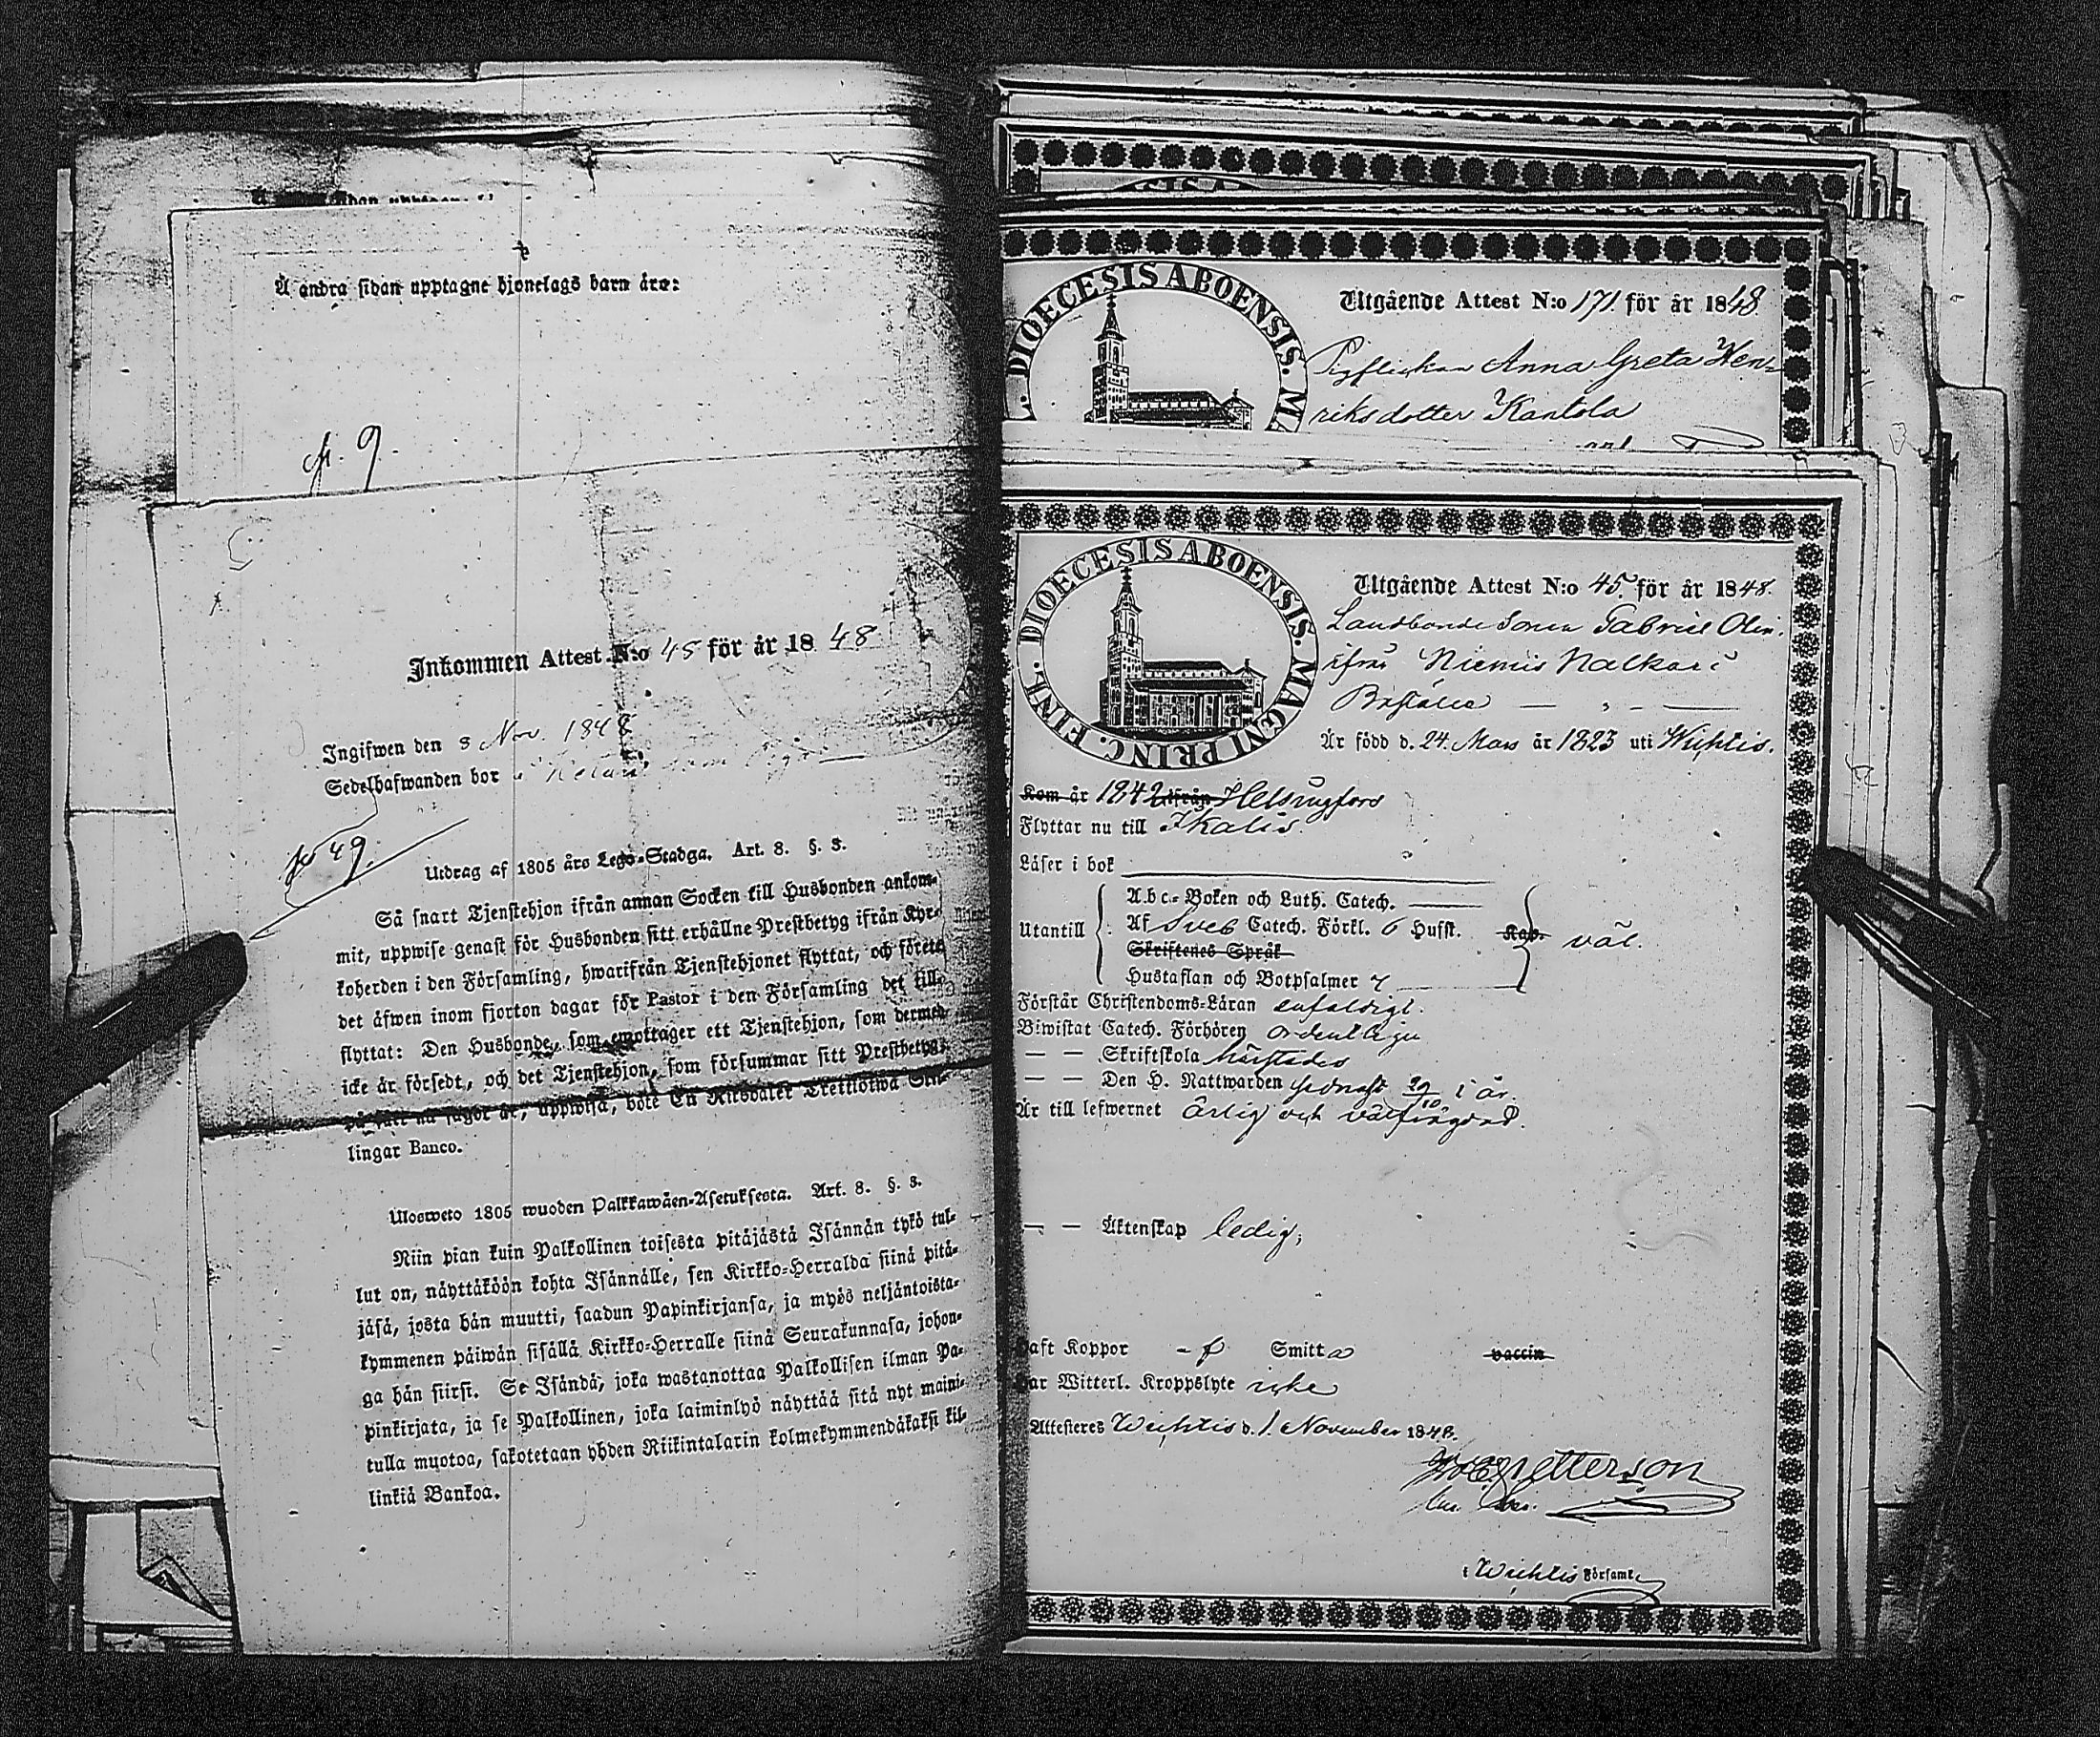 Å andra sidan upptagne hjonelags barn äro:
fr. 9.
Inkommen Attest N:o 45 för år 1848
Ingifwen den 8 Nov. 1848
Sedelhafwanden bor
fr 49.
Utdrag af 1805 års Lego-Stadga. Art. 8. §. 3.
Så snart Tjenstehjon ifrån annan Socken till Husbonden ankom-
mit, uppwise genast för Husbonden sitt erhållne Prestbetyg ifrån Kyr-
koherden i den Församling, hwarifrån Tjenstehjonet flyttat, och förete
det äfwen inom fjorton dagar för Pastor i den Församling det till-
flyttat: Den Husbonde, som emottager ett Tjenstehjon, som dermed
icke är försedt, och det Tjenstehjon, som försummar sitt Prestbetyg,
på sätt nu sagdt är, uppwisa, böte En Riksdaler Trettiotwå Skil-
lingar Banco.
Ulosweto 1805 wuoden Palkkawäen-Asetuksesta. Art. 8. §. 3.
Niin pian kuin Palkollinen toisesta pitäjästä Isännän tykö tul-
lut on, näyttäköön kohta Isännälle, sen Kirkko-Herralda siinä pitä-
jäsä, josta hän muutti, saadun Papinkirjansa, ja myös neljäntoista-
kymmenen päiwän sisällä Kirkko-Herralle siinä Seurakunnasa, johon-
ga hän siirsi. Se Isändä, joka wastanottaa Palkollisen ilman Pa-
pinkirjata, ja se Palkollinen, joka laiminlyö näyttää sitä nyt maini-
tulla muotoa, sakotetaan yhden Riikintalarin kolmekymmendäkaksi kil-
linkiä Bankoa.
DIOECESIS ABOENSIS. MA
Utgående Attest N:o 171 för år 1848.
Pigflickan Anna Greta Hen-
riksdotter Kantola
DIOECESIS ABOENSIS. MAGNI PRINC. FINL.
Utgående Attest N:o 45. för år 1848.
Landbonde Sonen Gabriel Olin.
ifrån Niemis Nalkari i
Är född d. 24. Mars år 1823 uti Wichtis.
Kom år 1842 ifrån Helsingfors
Flyttar nu till Ikalis.
Läser i bok
Utantill
A.b.c.-Boken och Luth. Catech.
Af Sveb Catech. Förkl. 6 Hufst. Kap. väl.
Skriftenes Språk
Hustaflan och Botpsalmer 7
Förstår Christendoms-Läran enfaldigt.
Biwistat Catech. Förhören ordentligen
— — Skriftskola härstädes
— — Den H. Nattwarden sednast 29/10 i år.
Är till lefwernet ärlig och välfrägdad.
— — Äktenskap ledig,
Haft Koppor Smitta vaccin
Har Witterl. Kroppslyte icke
Attesteras Wichtis d. 1. November 1848.
Petterson
i Wichtis Församl.